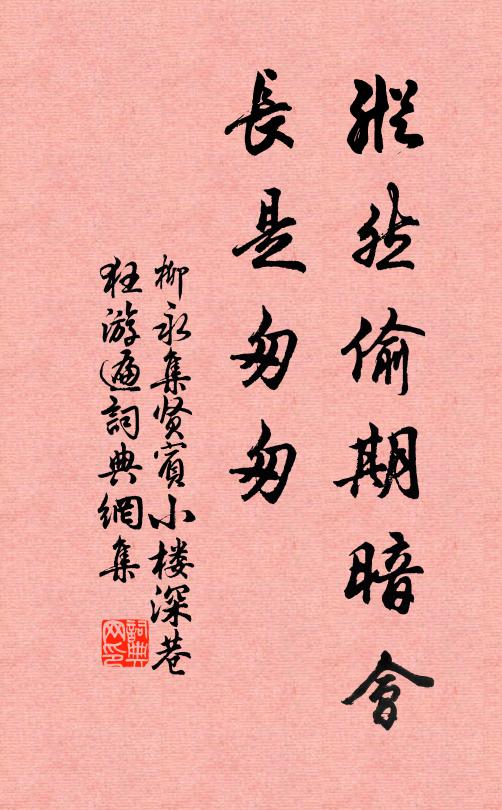 縱然偷期暗會
長是匆匆
柳永集贤賓小楼深巷
狂游遍詞典網集
詞典网印